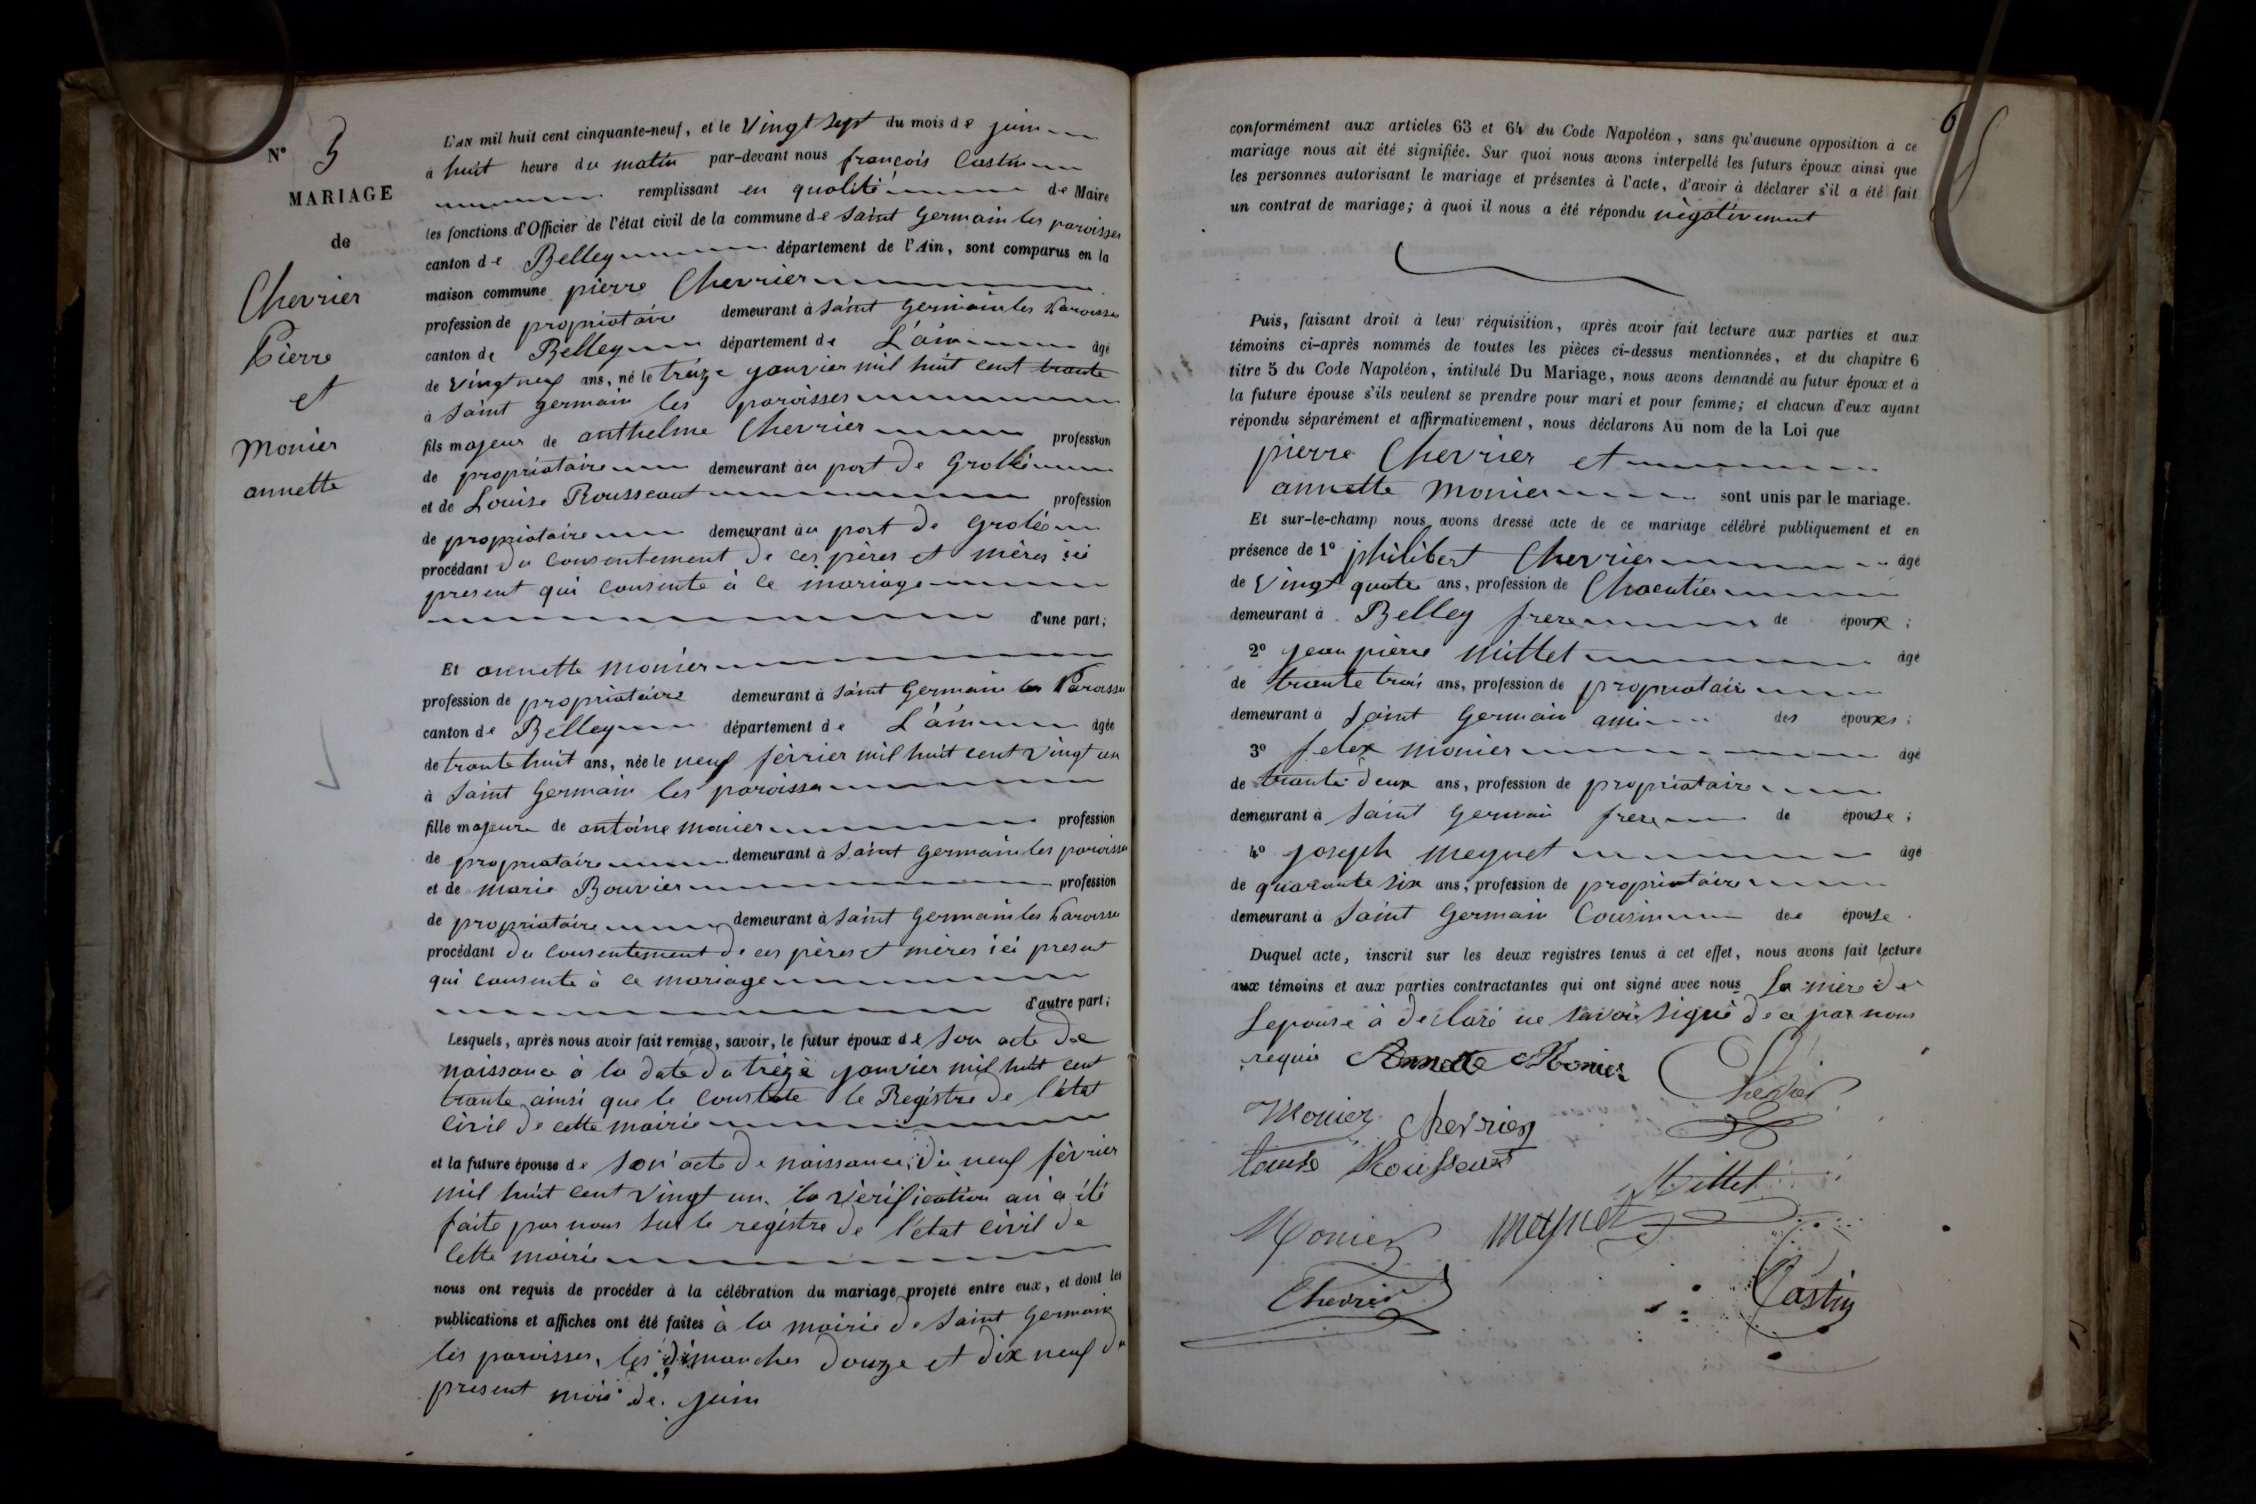 N° 3
MARIAGE
de
Chevrier
Pierre
et
Monier
annette
L'AN mil huit cent cinquante-neuf, et le Vingt sept du mois de juin
à huit heure du matin par-devant nous françois Castin
remplissant en qualité de Maire
les fonctions d'Officier de l'état civil de la commune de Saint Germain les paroisses
canton de Belley département de l'Ain, sont comparus en la
maison commune pierre Chevrier
profession de propriataire demeurant à Saint Germain les Paroisses
canton de Belley département de L'ain âgé
de Vingt neuf ans, né le treize janvier mil huit cent trante
à Saint Germain les paroisses
fils majeur de anthelme Chevrier profession
de propriataire demeurant au port de Grolée
et de Louise Rousseaut profession
de propriataire demeurant au port de Grolée
procédant du consentement de ces pères et mères ici
present qui consente à ce mariage
d'une part;
Et annette monier
profession de propriataire demeurant à Saint Germain les Paroisses
canton de Belley département de L'ain âgée
de trante huit ans, née le neuf février mil huit cent vingt un
à Saint Germain les paroisses
fille majeure de antoine monier profession
de propriataire demeurant à Saint Germain les paroisses
et de marie Bouvier profession
de propriataire demeurant à Saint Germain les Paroisses
procédant du consentement de ces pères et mères ici present
qui consente à ce mariage
d'autre part;
Lesquels, après nous avoir fait remise, savoir, le futur époux de son acte de
naissance à la date du trèze janvier mil huit cent
trante ainsi que le constate le Registre de l'état
civil de cette mairie
et la future épouse de son acte de naissance, du neuf février
mil huit cent vingt un. la vérification an a été
faite par nous sur le registre de l'état civil de
cette mairie
nous ont requis de procéder à la célébration du mariage projeté entre eux, et dont les
publications et affiches ont été faites à la mairie de Saint Germain
les paroisses, les dimanches douze et dix neuf du
present mois de juin
6
conformément aux articles 63 et 64 du Code Napoléon, sans qu'aucune opposition à ce
mariage nous ait été signifiée. Sur quoi nous avons interpellé les futurs époux ainsi que
les personnes autorisant le mariage et présentes à l'acte, d'avoir à déclarer s'il a été fait
un contrat de mariage; à quoi il nous a été répondu négativement
Puis, faisant droit à leur réquisition, après avoir fait lecture aux parties et aux
témoins ci-après nommés de toutes les pièces ci-dessus mentionnées, et du chapitre 6
titre 5 du Code Napoléon, intitulé Du Mariage, nous avons demandé au futur époux et à
la future épouse s'ils veulent se prendre pour mari et pour femme; et chacun d'eux ayant
répondu séparément et affirmativement, nous déclarons Au nom de la Loi que
pierre Chevrier et
annette monier sont unis par le mariage.
Et sur-le-champ nous avons dressé acte de ce mariage célébré publiquement et en
présence de 1° philibert Chevrier âgé
de Vingt quatre ans, profession de
demeurant à Belley frere de époux;
2° jean pierre Mittet âgé
de trante trois ans, profession de propriataire
demeurant à Saint Germain ami des époux;
3° felex monier âgé
de trante deux ans, profession de propriataire
demeurant à Saint Germain frere de épouse;
4° joseph meynet âgé
de quarante six ans, profession de propriataire
demeurant à Saint Germain Cousin de épouse.
Duquel acte, inscrit sur les deux registres tenus à cet effet, nous avons fait lecture
aux témoins et aux parties contractantes qui ont signé avec nous La mère de
Lepouse à declaré ne savoir signé de ce par nous
requis Annette Monier Chevrier
Monier Chevrier
Louise Rousseaut
Mittet
Monier meynet
Chevrier Castin